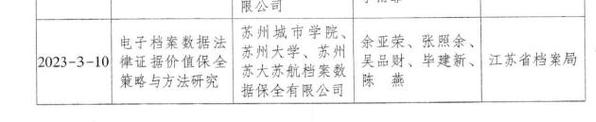 限公司
2023-3-10
电子档案数据法
律证据价值保全
策略与方法研究
苏州城市学院、
苏州大学、苏州
苏大苏航档案数
据保全有限公司
余亚荣、张照余、
吴品财、毕建新、
陈 燕
江苏省档案局